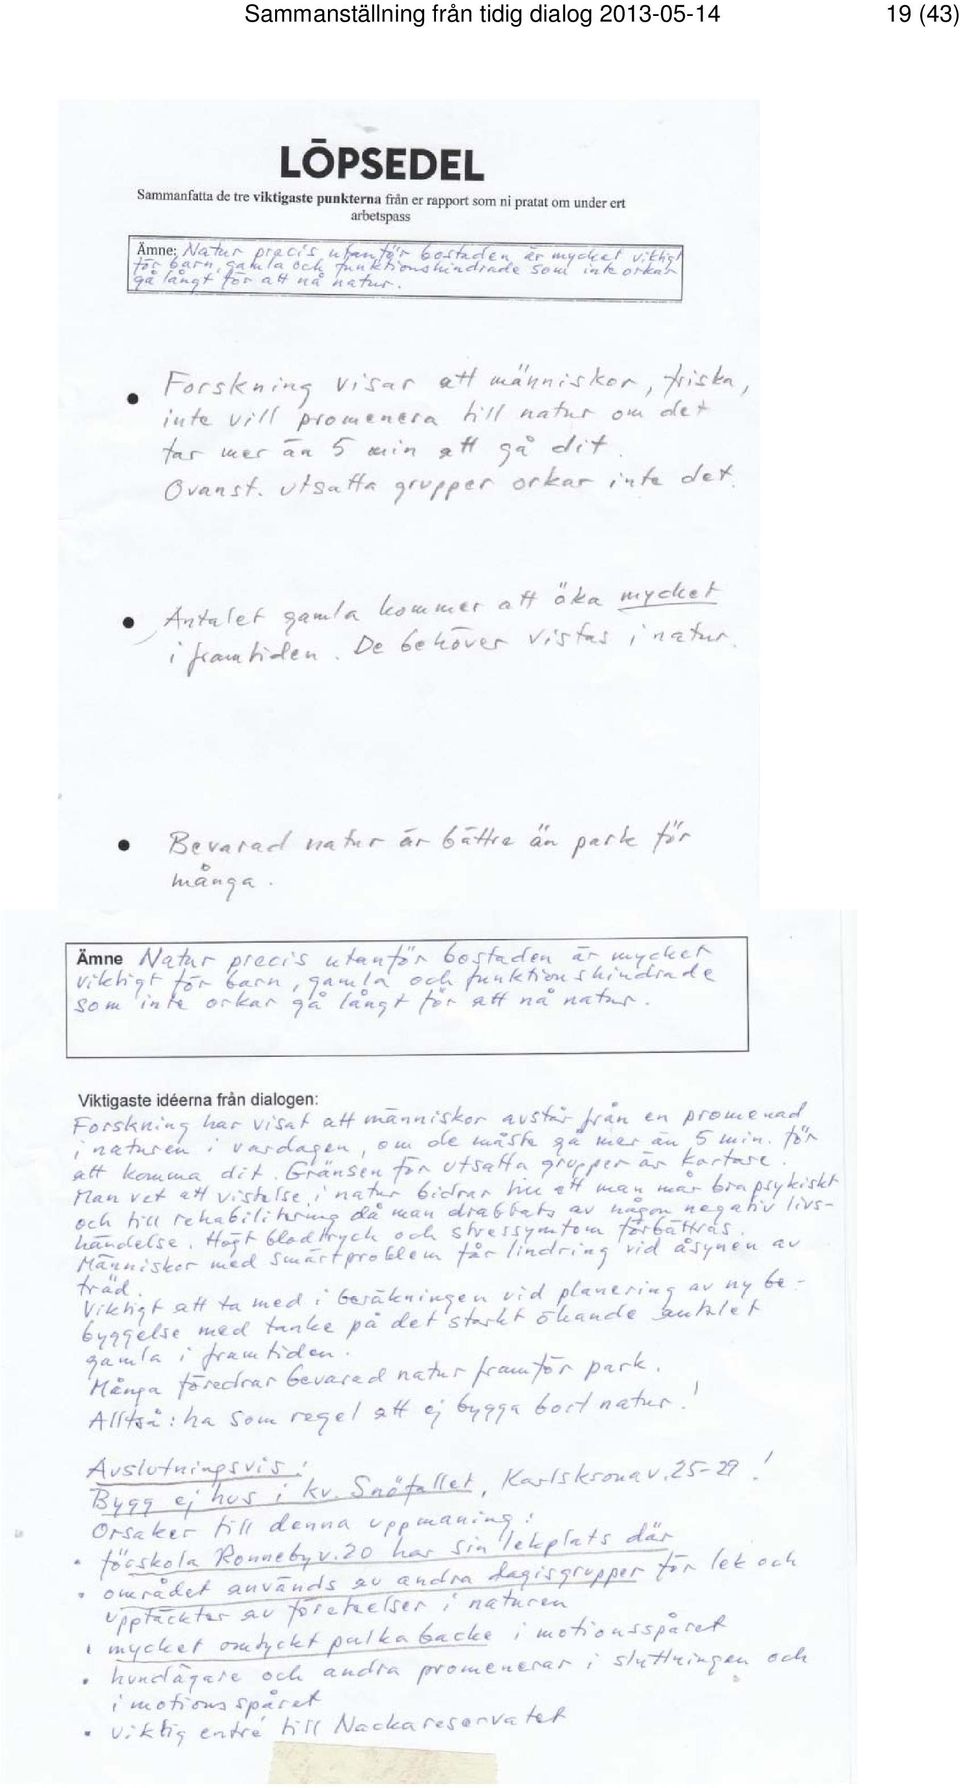 Sammanställning från tidig dialog 2013-05-14 19 (43)
LÖPSEDEL
Sammanfatta de tre viktigaste punkterna från er rapport som ni pratat om under ert
arbetspass
Ämne: Natur precis utanför bostaden är mycket viktigt
för barn, gamla och funktionshindrade som inte orkar
gå långt för att nå natur.
• Forskning visar att människor, friska,
inte vill promenera till natur om det
tar mer än 5 min att gå dit.
Ovanst. utsatta grupper orkar inte det.
• Antalet gamla kommer att öka mycket
i framtiden. De behöver vistas i natur.
• Bevarad natur är bättre än park för
många.
Ämne Natur precis utanför bostaden är mycket
viktigt för barn, gamla och funktionshindrade
som inte orkar gå långt för att nå natur.
Viktigaste idéerna från dialogen:
Forskning har visat att människor avstår från en promenad
i naturen i vardagen, om de måste gå mer än 5 min. för
att komma dit. Gränsen för utsatta grupper är kortare.
Man vet att vistelse i natur bidrar till att man mår bra psykiskt
och till rehabilitering då man drabbats av någon negativ livs-
händelse. Högt blodtryck och stressymtom förbättras.
Människor med smärtproblem får lindring vid åsynen av
träd.
Viktigt att ta med i beräkningen vid planering av ny be-
byggelse med tanke på det starkt ökande antalet
gamla i framtiden.
Många föredrar bevarad natur framför park.
Alltså: ha som regel att ej bygga bort natur!
Avslutningsvis:
Bygg ej hus i kv. Snöfallet, Karlskronav. 25-29!
Orsaker till denna uppmaning:
• förskola Ronnebyv. 20 har sin lekplats där
• området används av andra dagisgrupper för lek och
upptäckter av företeelser i naturen
• mycket omtyckt pulkabacke i motionsspåret
• hundägare och andra promenerar i sluttningen och
i motionsspåret
• viktig entré till Nackareservatet